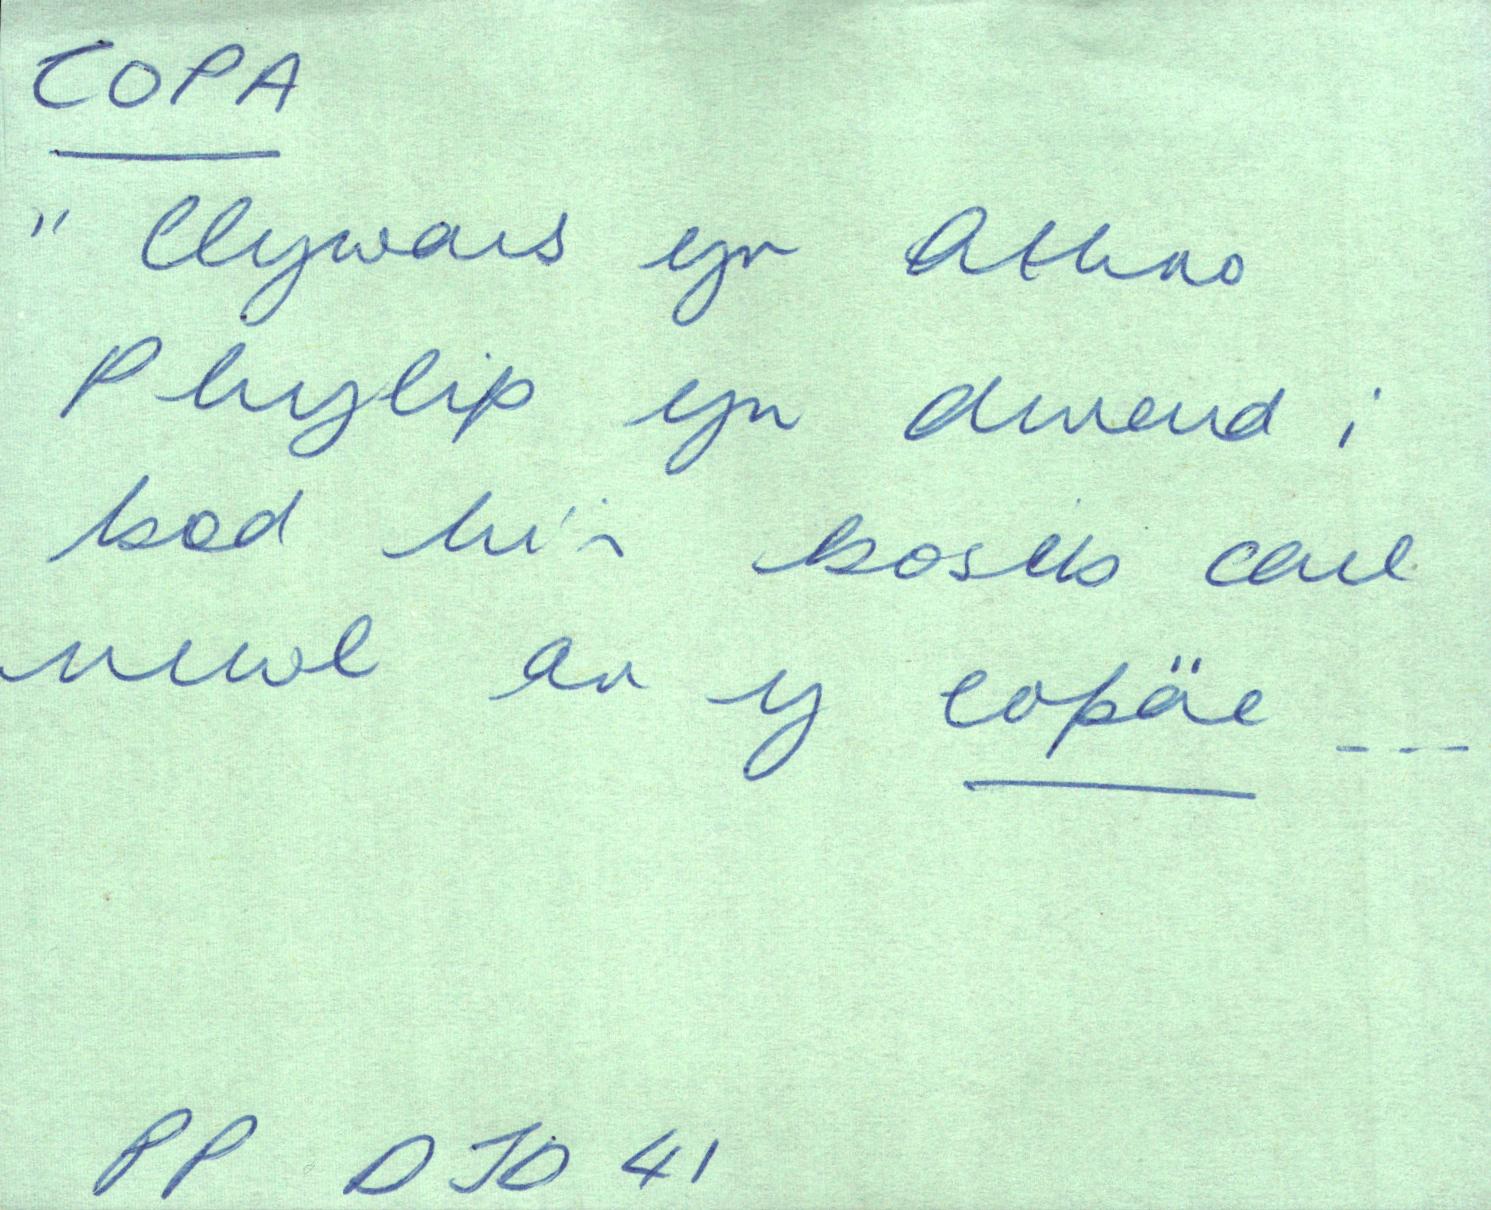 COPA
" Clywais yr Athro
Phylip yn dweud i
bod hi'n bosib cael
niwl ar y copäe ---
PP DJD 41